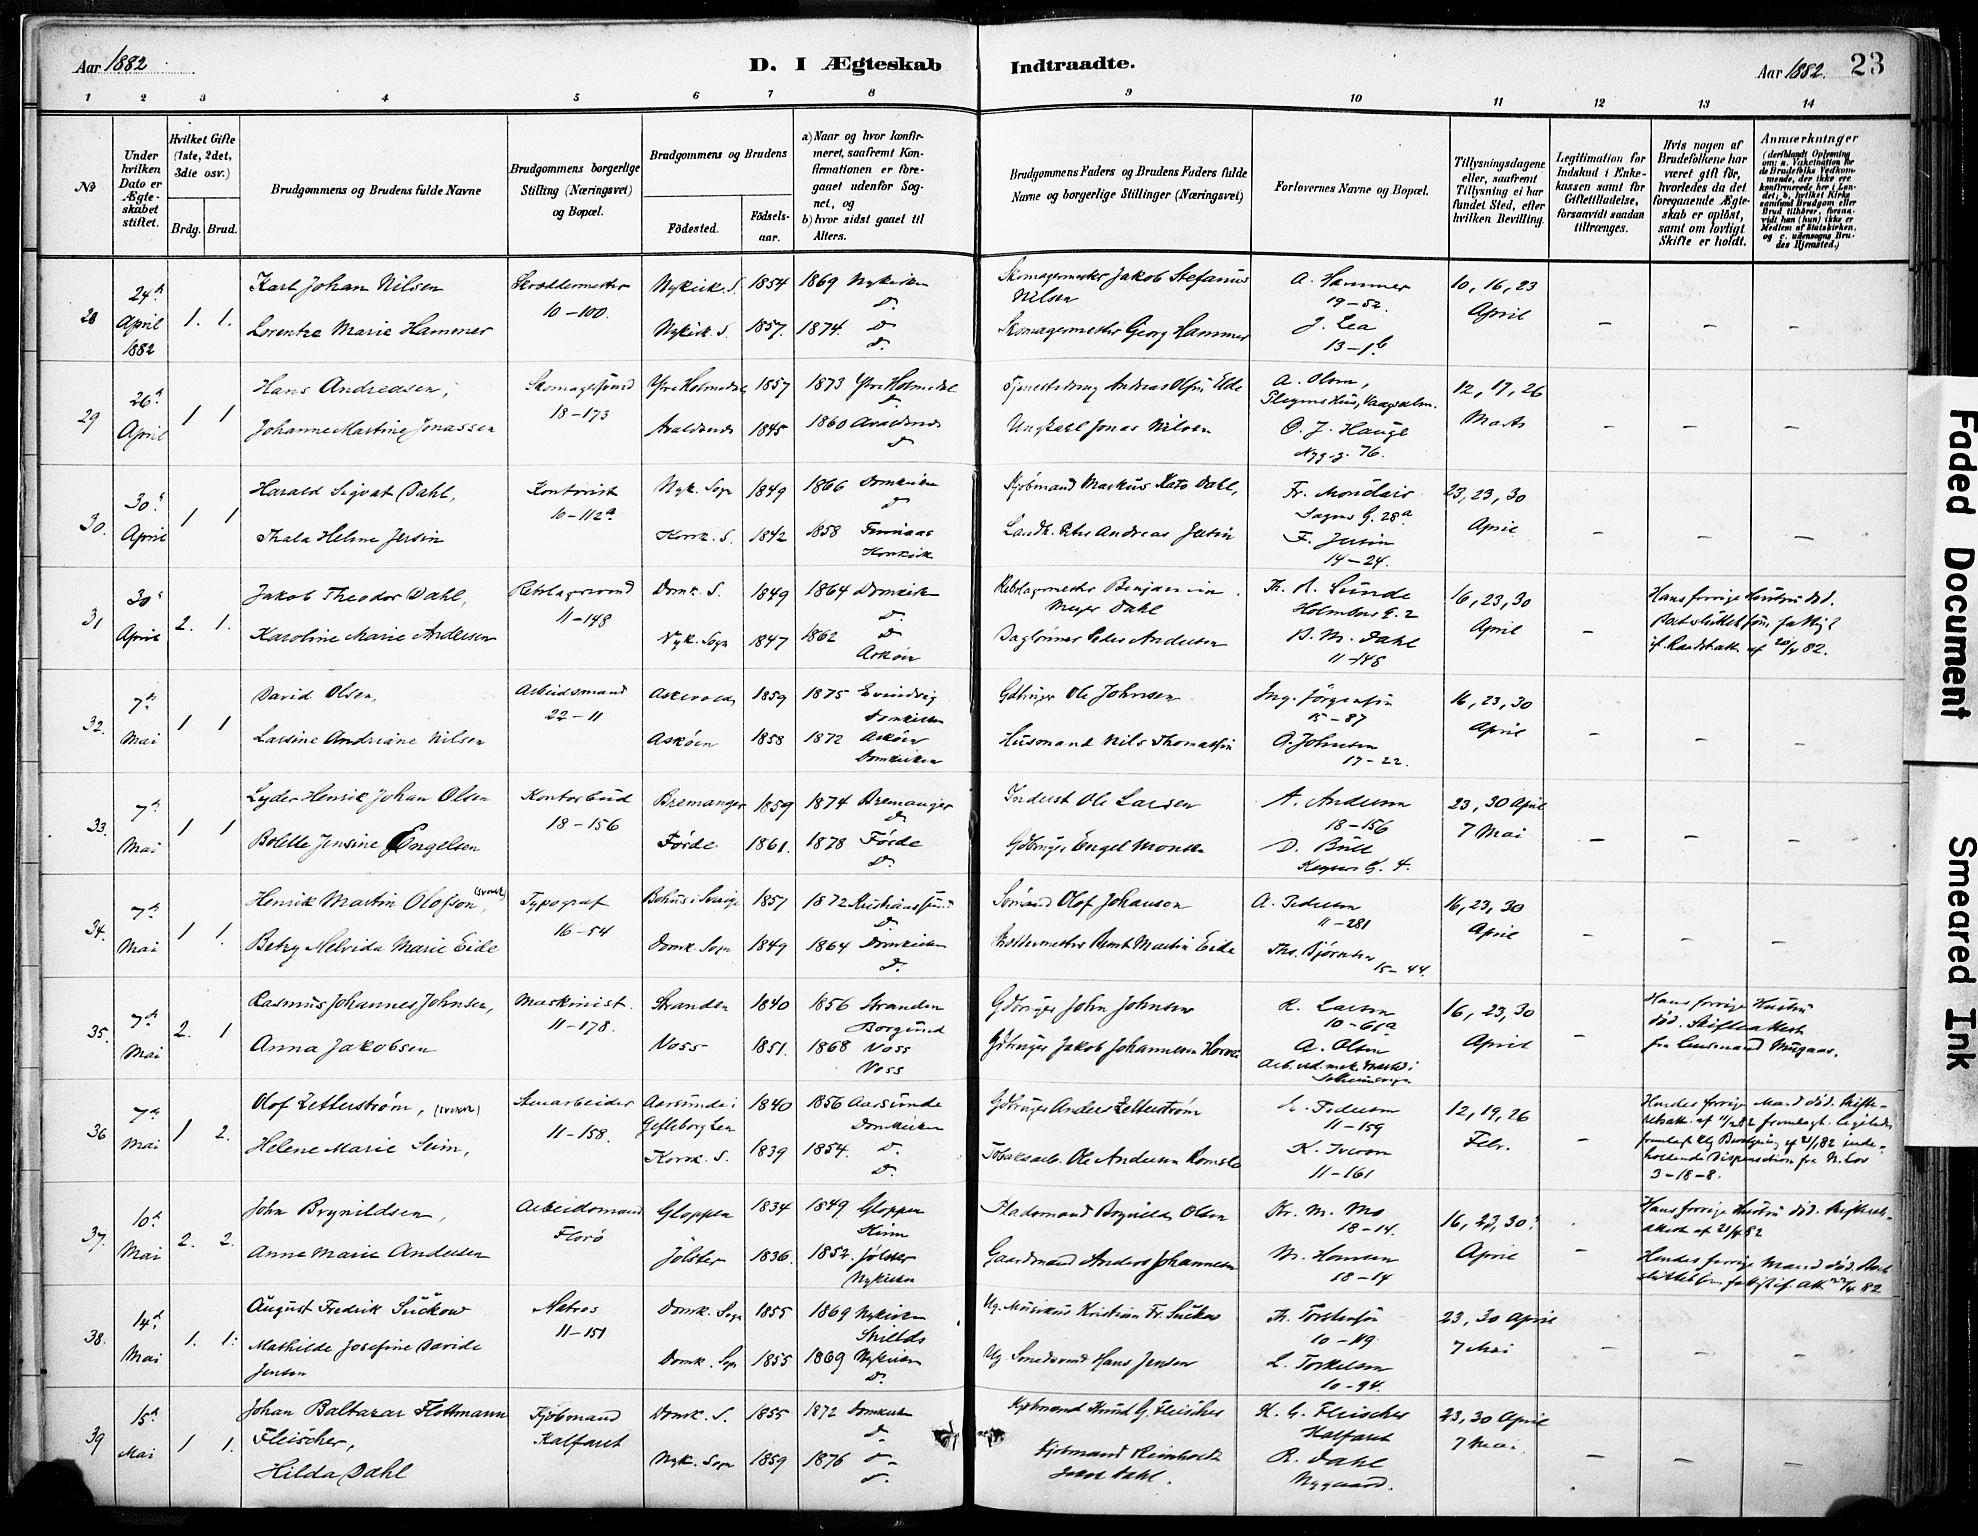 Aar 1882
D. I Ægteskab Indtraadte.
Aar 1882. 23
1 2 3 4 5 6 7 8 9 10 11 12 13 14
No
Under hvilken Dato er Ægteskabet stiftet.
Hvilket Gifte (1ste, 2det, 3die osv.)
Brdg. Brud.
Brudgommens og Brudens fulde Navne
Brudgommens borgerlige Stilling (Næringsvei) og Bopæl.
Brudgommens og Brudens
Fødested. Fødselsaar.
a) Naar og hvor konfirmeret, saafremt Konfirmationen er foregaaet udenfor Sognet, og
b) hvor sidst gaaet til Alters.
Brudgommens Faders og Brudens Faders fulde Navne og borgerlige Stillinger (Næringsvei)
Forlovernes Navne og Bopæl.
Tillysningsdagene eller, saafremt Tillysning ei har fundet Sted, efter hvilken Bevilling.
Legitimation for Indskud i Enkekassen samt for Giftetilladelse, forsaavidt saadan tiltrænges.
Hvis nogen af Brudefolkene har været gift før, hvorledes da det foregaaende Ægteskab er opløst, samt om lovligt Skifte er holdt.
Anmærkninger
28 24de April 1882 1. 1.
Karl Johan Nilsen Skræddermester 10-100. Nykirk. S. 1854 1869 Nykirken d. Skomagermester Jakob Stefanus Nilsen A. Hammer 19-52. 10, 16, 23 April
Lorentze Marie Hammer Nykirk. S. 1857. 1874. d. d. Skomagermester Georg Hammer J. Lea 13-1b
29 26de April 1 1
Hans Andreasen, Skomagersvend 18-173 Ytre Holmedal 1857 1873 Ytre Holmedal d. Andreas Olsen Eide A. Olsen, 12, 17, 26 Marts
Johanne Martine Jonassen Avaldsnes 1845 1860 Avaldsnes d. Ungkarl Jonas Nilsen O. J. Hauge Nyg. g. 76.
30. 30te April 1 1
Harald Sigvat Dahl, Kontorist 10-112a Nyk. Sogn 1849 1866 Domkirken d. Kjøbmand Markus Kato Dahl, Fr. Monclair 28a 23, 23, 30 April
Thala Helene Jersin Korsk. S. 1842 1858 Finnaas Korskirk Peter Andreas Jersin F. Jersin 14-24.
31 30te April 2. 1.
Jakob Theodor Dahl, Rebslagersvend 11-148 Domk. S. 1849 1864 Domkirken d. Rebslagermester Benjamin Meyer Dahl Th. A. Sunde Holmbergs g. 2 16, 23, 30 April Hans forrige Hustru død.
Karoline Marie Andersen Nyk. Sogn 1847 1862 d. Askøen Daglønner Peder Andersen B. M. Dahl 11-148 20/4 82.
32. 7de Mai 1 1
David Olsen, Arbeidsmand 22-11 Askevold 1859 1875 Evindvig Domkirken Gdbruger Ole Johnsen Ing. Jørgensen 15-87 16, 23, 30 April
Larsine Andriane Nilsen Askøen 1858 1872 Askøen Domkirken Husmand Nils Thomassen G. Johnsen 17-22.
33. 7de Mai 1 1
Lyder Henrik Johan Olsen Kontorbud 18-156 Bremanger 1859 1874 Bremanger d. Inderst Ole Larsen A. Andersen 18-156 23, 30 April 7 Mai
Bolette Jensine Engelsen Førde 1861. 1878 Førde d. Gdbruger Engel Monsen D. Bull 4.
34. 7de Mai 1 1.
Henrik Martin Olofson, (svensk) Typograf 16-54 Bohus i Sverige 1857 1872 Kristianssund d. Sømand Olof Johanson A. Pedersen 11-281 16, 23, 30 April
Betzy Helvida Marie Eide Domk. Sogn 1849 1864 Domkirken d. Bent Martin Eide Ths. Bjørnsen 15-44.
35. 7de Mai 2. 1
Rasmus Johannes Johnsen, Maskinist 11-178. Stranden 1840 1856 Stranden Borgund Gdbruger John Johnsen R. Larsen 10-61a 16, 23, 30 April Hans forrige Hustru død. Skifteattest fra Lensmand
Anna Jakobsen Voss 1851. 1868 Voss Voss Gdbruger Jakob Johannesen A. Olsen Arb. ved mek. Værksted i Solheimsvigen
36 7de Mai 1 2.
Olof Zetterström, (svensk) Stenarbeider 11-158. Aarsunda i Gefleborg Len 1840 1856 Aarsunda Domkirken Gdbruger Anders Zetterström L. Pedersen 11-159 12, 19, 26 Febr. Hendes forrige Mand død.
Helene Marie Seim, Korsk. S. 1839 1854. d. d. Tobaksarb. Ole Andersen K. Iverson 11-161 Dispensation fra N. Lov 3-18-8.
37. 10de Mai 2. 2.
John Brynildsen, Arbeidsmand Florø Gloppen 1834 1849 Gloppen Kinn Pladsmand Brynild Olsen Kr. M. Mo 18-14. 16, 23, 30 April Hans forrige Hustru død. 21/4 82
Anne Marie Andersen Jølster 1836. 1852. Jølster Nykirken Gaardmand Anders Johannesen M. Hansen 18-14 Hendes forrige Mand død.
38. 14de Mai 1. 1.
August Fredrik Süchow Matros 11-151 Domk. Sogn 1855 1869 Nykirken Shields Ug. Musikus Kristian Fr. Süchow Th. Torstensen 10-119 23, 30 April 7 Mai
Mathilde Josefine Davide Jensen Domk. Sogn 1855 1869 Nykirken d. Ug. Smedsvend Hans Jensen L. Torkelsen 10-94.
39 15de Mai 1 1.
Johan Baltazar Flottmann Fleischer, Kjøbmand Kalfaret Domk. S. 1855 1872 Domkirken d. Kjøbmand Knud G. Fleischer K. G. Fleischer Kalfaret 23, 30 April 7 Mai
Hilda Dahl Nyk. Sogn 1859 1876 d. d. Kjøbmand Reinholdt Dahl. R. Dahl Nygaard.
Faded Document
Smeared Ink